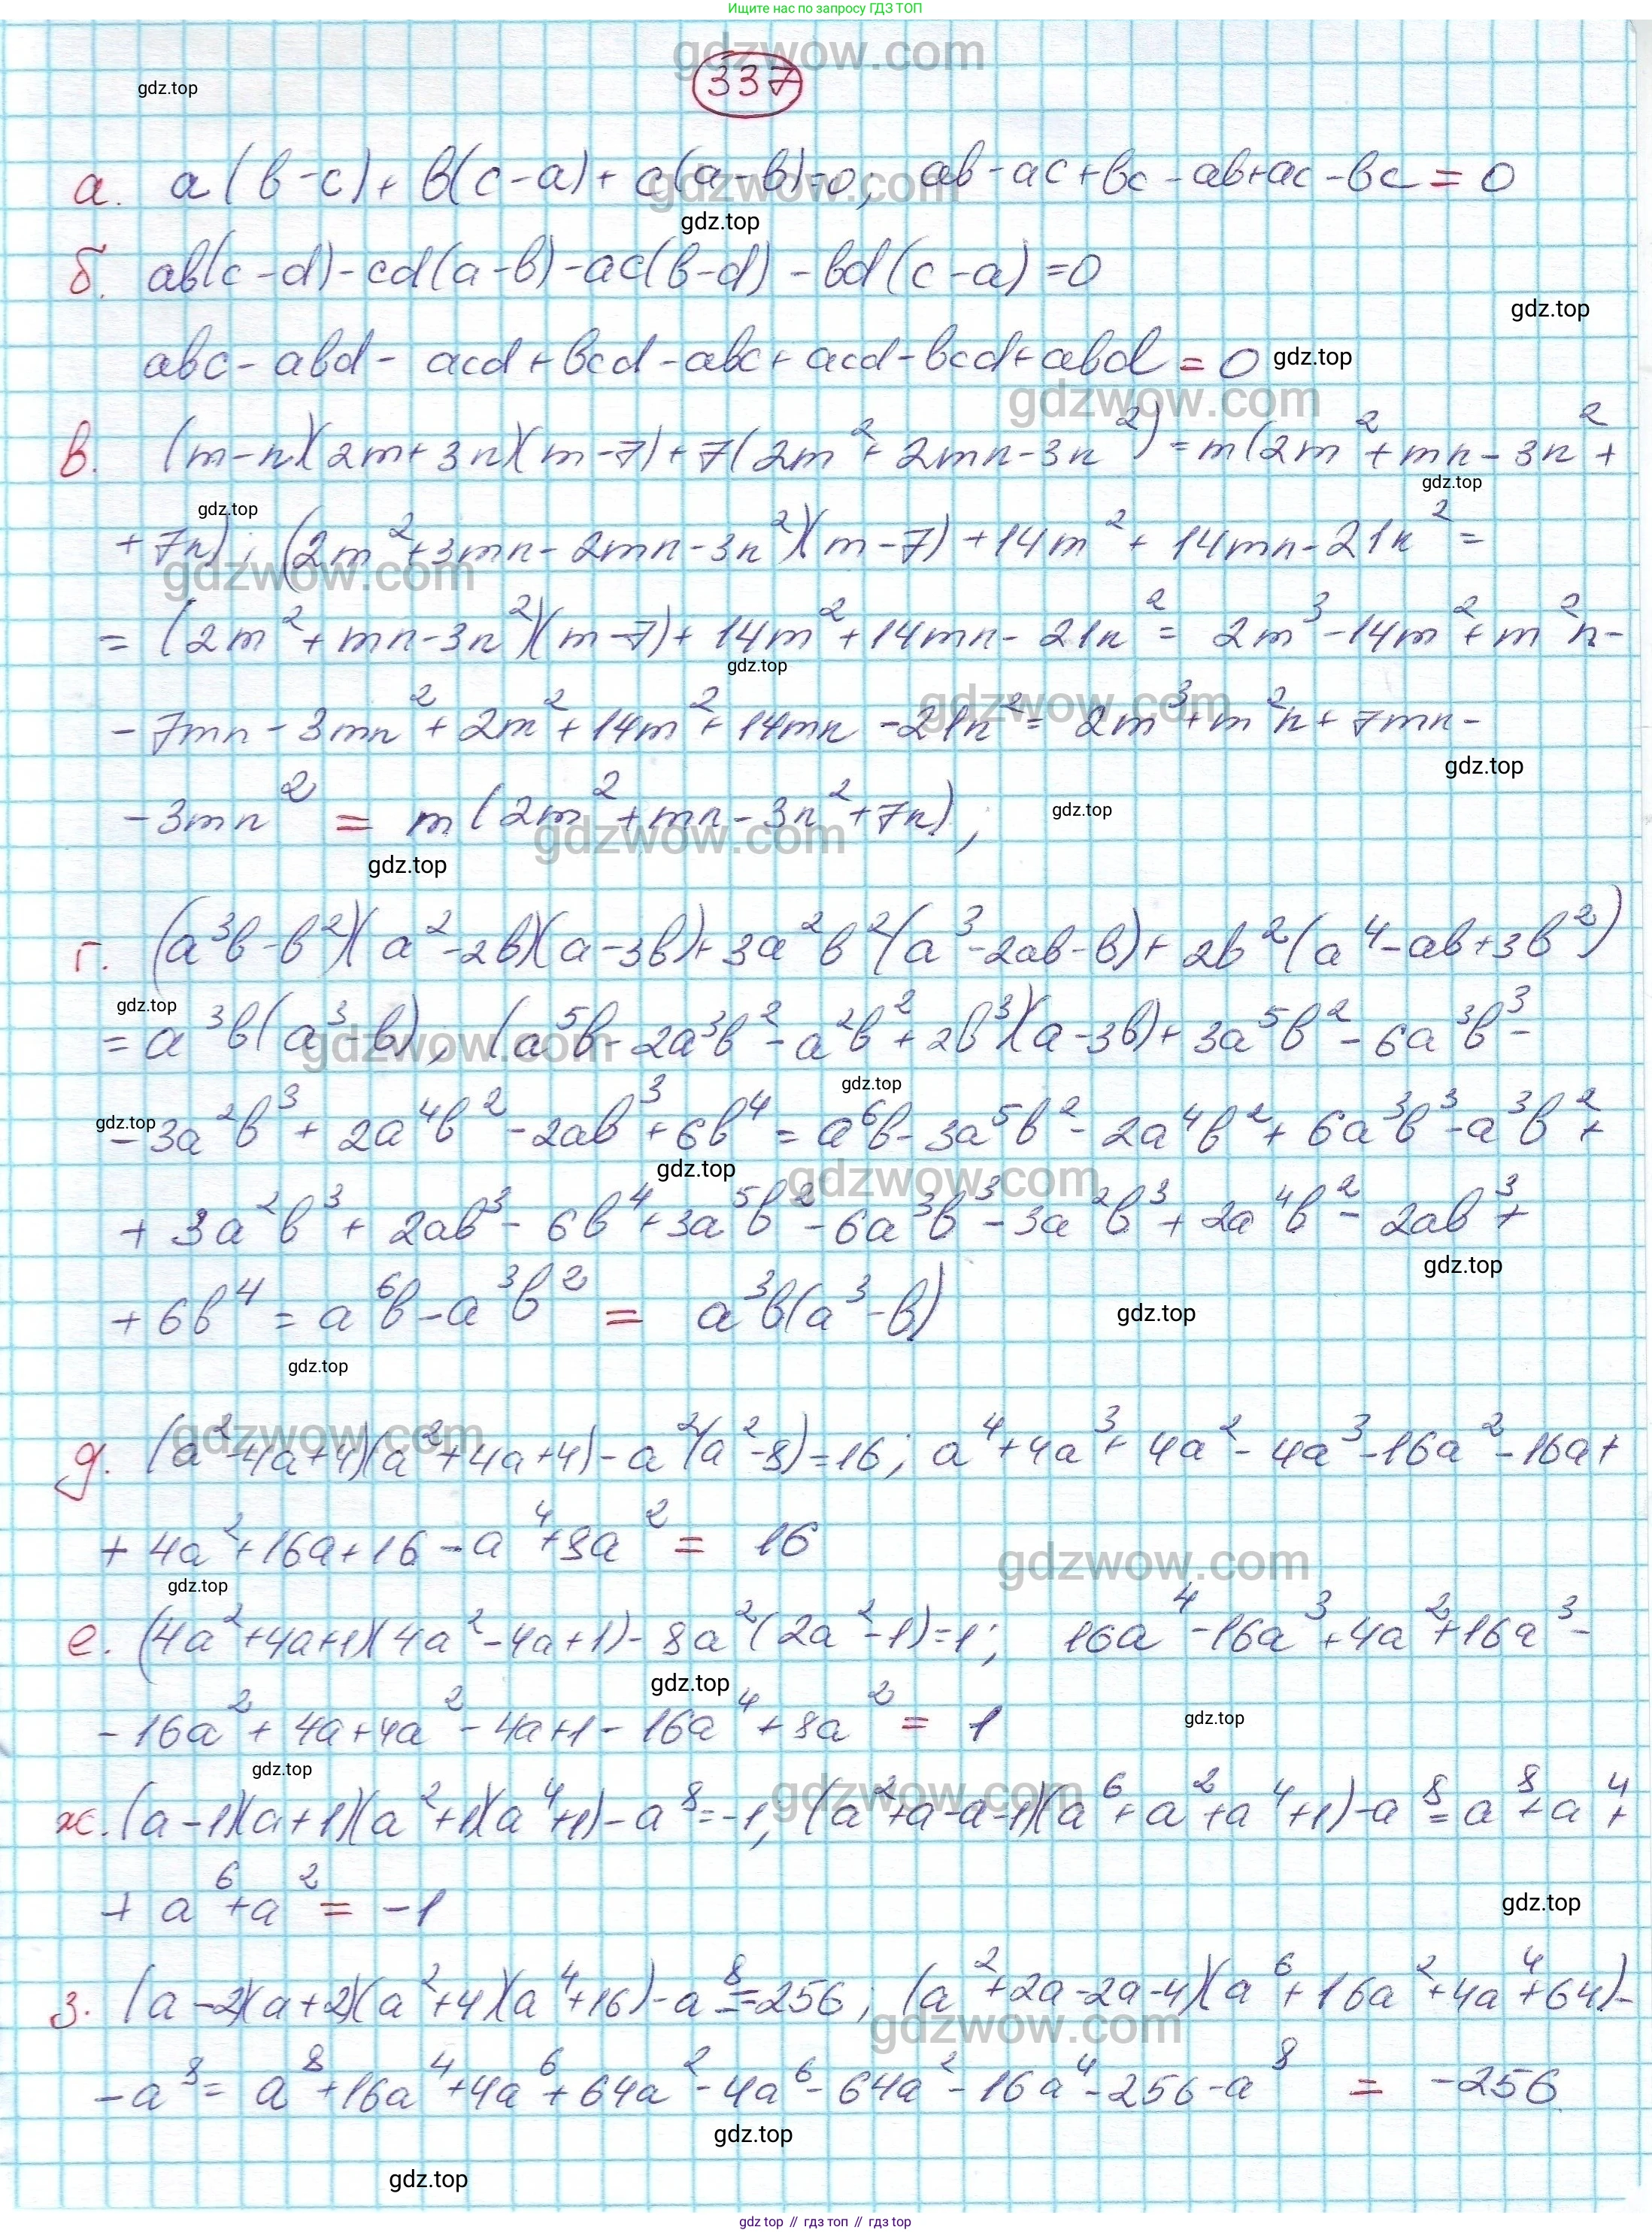 Ищите нас по запросу ГДЗ ТОП
gdzwow.com
337
gdz.top
а. a(b-c)+b(c-a)+c(a-b)=0; ab-ac+bc-ab+ac-bc=0
gdzwow.com
gdz.top
б. ab(c-d)-cd(a-b)-ac(b-d)-bd(c-a)=0
gdz.top
abc-abd-acd+bcd-abc+acd-bcd+abd=0
gdz.top
gdzwow.com
в. (m-n)(2m+3n)(m-7)+7(2m²+2mn-3n²)=m(2m²+mn-3n²+
gdz.top
gdz.top
+7n); (2m²+3mn-2mn-3n²)(m-7)+14m²+14mn-21n²=
gdzwow.com
=(2m²+mn-3n²)(m-7)+14m²+14mn-21n²=2m³-14m²+m²n-
gdz.top
gdzwow.com
-7mn-3mn²+2m²+14m²+14mn-21n²=2m³+m²n+7mn-
gdz.top
-3mn²=m(2m²+mn-3n²+7n),
gdz.top
gdzwow.com
gdz.top
г. (a³b-b²)(a²-2b)(a-3b)+3a²b²(a³-2ab-b)+2b²(a⁴-ab+3b²)
gdz.top
=a³b(a³-b), (a⁵b-2a³b²-a²b²+2b³)(a-3b)+3a⁵b²-6a³b³-
gdzwow.com
gdz.top
gdz.top
-3a²b³+2a⁴b²-2ab³+6b⁴=a⁶b-3a⁵b²-2a⁴b²+6a³b³-a³b²+
gdz.top
gdzwow.com
+3a²b³+2ab³-6b⁴+3a⁵b²-6a³b³-3a²b³+2a⁴b²-2ab³+
gdz.top
+6b⁴=a⁶b-a³b²=a³b(a³-b)
gdz.top
gdz.top
gdzwow.com
д. (a²-4a+4)(a²+4a+4)-a²(a²-8)=16; a⁴+4a³+4a²-4a³-16a²-16a+
+4a²+16a+16-a⁴+8a²=16
gdzwow.com
gdz.top
е. (4a²+4a+1)(4a²-4a+1)-8a²(2a²-1)=1; 16a⁴-16a³+4a²+16a³-
gdz.top
-16a²+4a+4a²-4a+1-16a⁴+8a²=1
gdz.top
gdz.top
gdzwow.com
ж. (a-1)(a+1)(a²+1)(a⁴+1)-a⁸=-1, (a²+a-a-1)(a⁶+a²+a⁴+1)-a⁸=a⁸+a⁴+
+a⁶+a²=-1
gdz.top
з. (a-2)(a+2)(a²+4)(a⁴+16)-a⁸=-256; (a²+2a-2a-4)(a⁶+16a²+4a⁴+64)-
gdzwow.com
-a⁸=a⁸+16a⁴+4a⁶+64a²-4a⁶-64a²-16a⁴-256-a⁸=-256
gdz.top
gdz.top
gdz top // гдз топ // гдз top